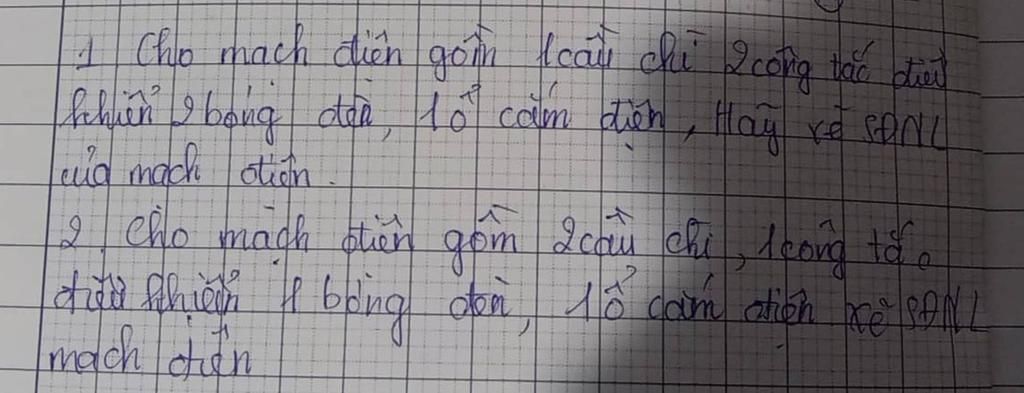 1 Cho mạch điện gồm 1 cầu chì 2 công tắc điều
khiển 2 bóng đèn, 1 ổ cắm điện, Hãy vẽ SĐNL
của mạch điện.
2. Cho mạch điện gồm 2 cầu chì, 1 công tắc
điều khiển 1 bóng đèn, 1 ổ cắm điện vẽ SĐNL
mạch điện